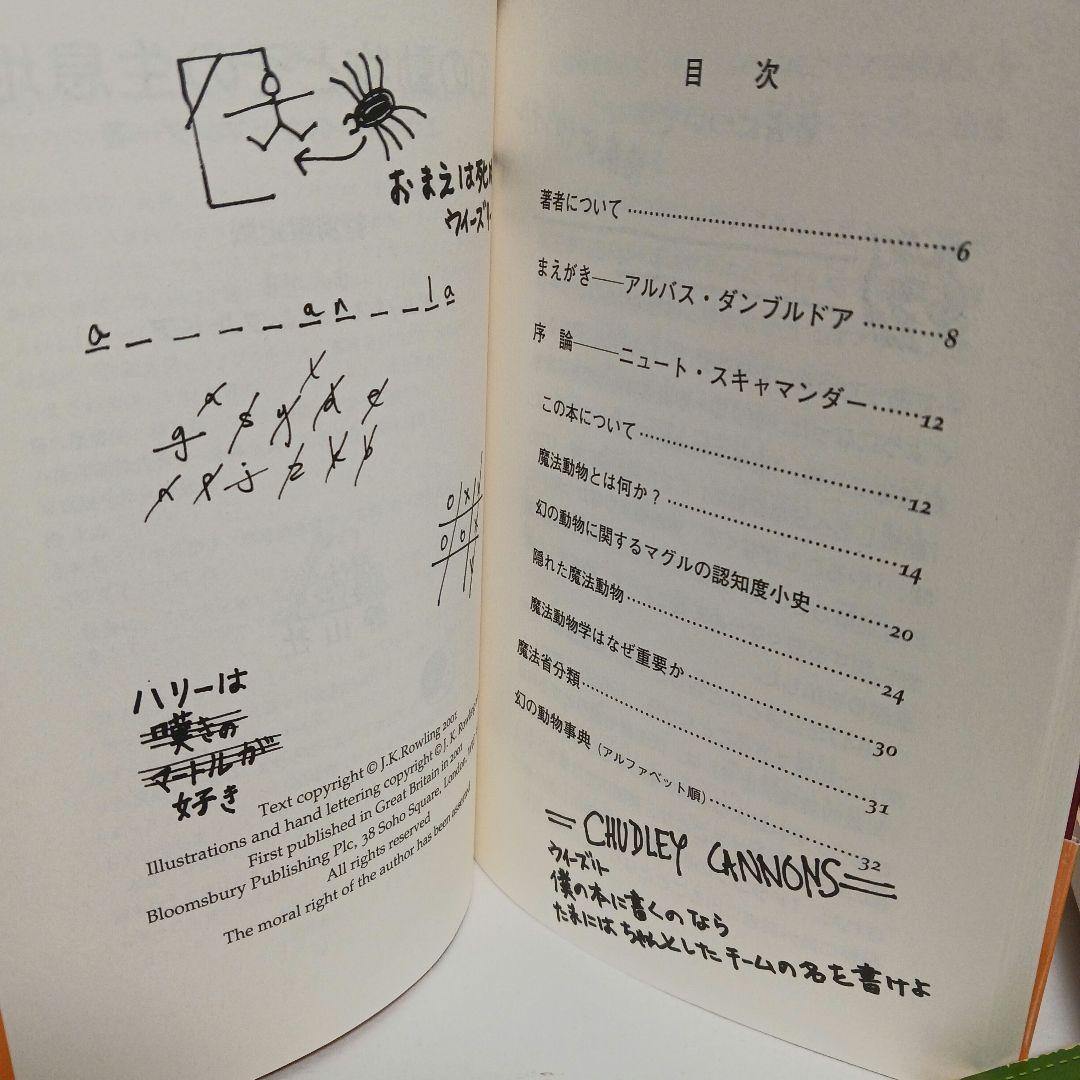 おまえは死
ウィーズリ
a _ _ _ _ a n _ _ l a
x x
g s y d e
x l j z k b
O X
O O X
X
ハリーは
嘆きの
マートルが
好き
Text copyright © J.K.Rowling 2001
Illustrations and hand lettering copyright © J. K. Rowling
First published in Great Britain in 2001
Bloomsbury Publishing Plc, 38 Soho Square, London,
All rights reserved
The moral right of the author has been asserted
目 次
著者について 6
まえがき——アルバス・ダンブルドア 8
序 論——ニュート・スキャマンダー 12
この本について 12
魔法動物とは何か? 14
幻の動物に関するマグルの認知度小史 20
隠れた魔法動物 24
魔法動物学はなぜ重要か 30
魔法省分類 31
幻の動物事典(アルファベット順) 32
CHUDLEY CANNONS
ウィーズリー
僕の本に書くのなら
たまにはちゃんとしたチームの名を書けよ